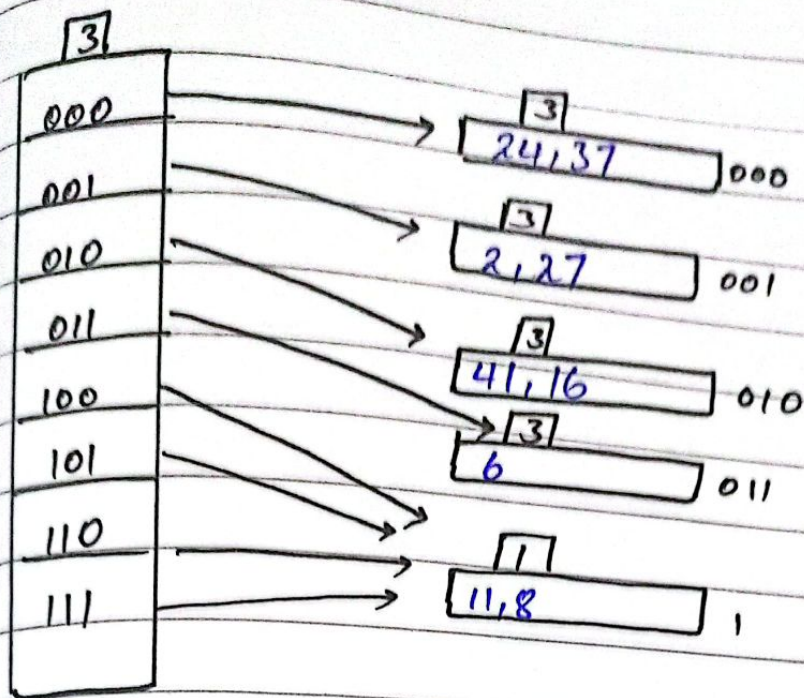 3
000
001
010
011
100
101
110
111
3
24,37
000
3
2,27
001
3
41,16
010
3
6
011
1
11,8
1